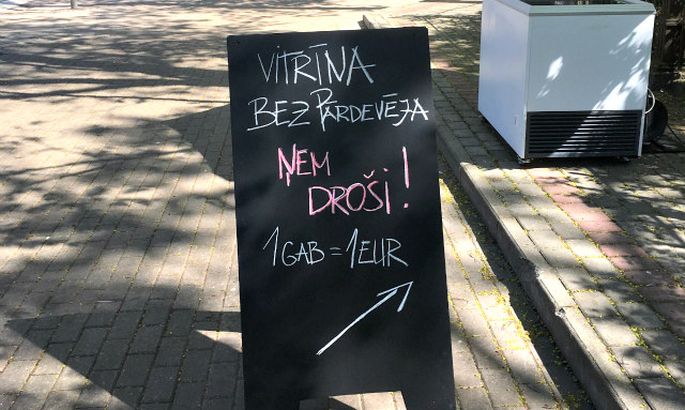 VITRĪNA
BEZ PĀRDEVĒJA
ŅEM
DROŠI!
1GAB = 1EUR